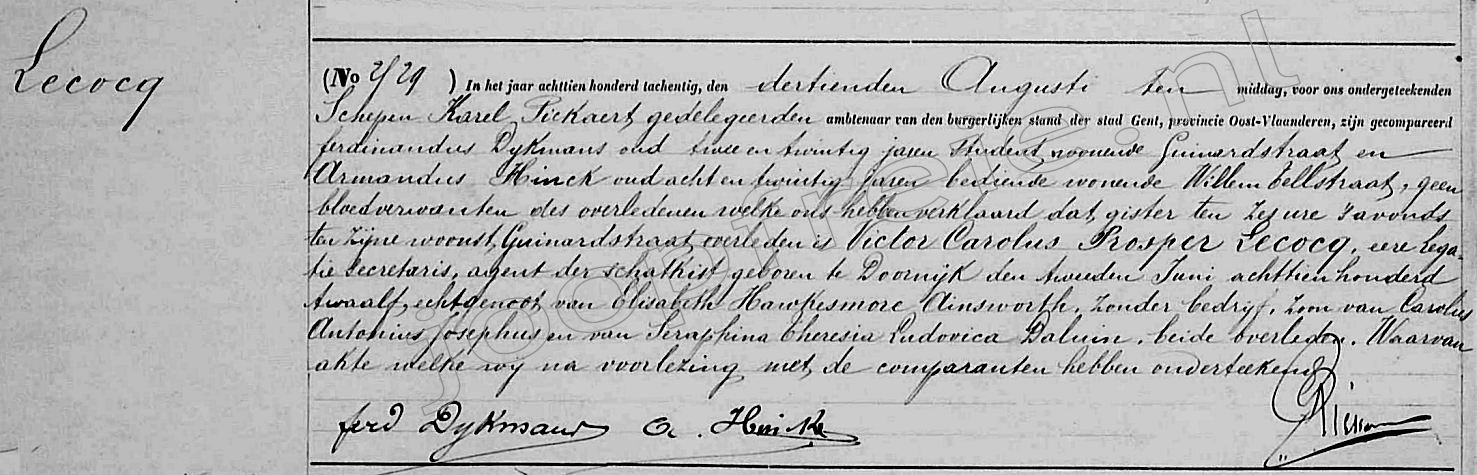 Lecocq
(No 2/29 ) In het jaar achttien honderd tachentig, den dertienden Augusti ten middag, voor ons ondergeteekenden
Schepen Karel Pickaert gedelegeerden ambtenaar van den burgerlijken stand der stad Gent, provincie Oost-Vlaanderen, zijn gecompareerd
ferdinandus Dykmans oud twee en twintig jaren Student woonende Guinardstraat en
Armandus Hinck oud acht en twintig jaren bediende wonende Willem Tellstraat, geen
bloedverwanten des overledenen welke ons hebben verklaard dat gister ten zes ure savonds
ten zijne woonst Guinardstraat overleden is Victor Carolus Prosper Lecocq, eere lega-
tie Secretaris, agent der schatkist geboren te Doornijk den tweeden Juni achttien honderd
twaalf, echtgenoot van Elisabeth Hawkesmore Ainsworth, zonder bedryf, zoon van Carolus
Antonius Josephus en van Seraphina Theresia Ludovica Daluin, beide overleden. Waarvan
akte welke wy na voorlezing met de comparanten hebben onderteekend
ferd Dykmans A. Hinck
jooptreie.nl